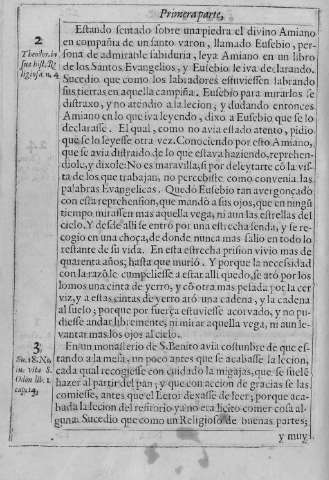 Primera parte,
2
Theodor. in
sua hist. Re
ligiosa n. 4
Estando sentado sobre vna piedra el divino Amiano
en compañia de vn santo varon, llamado Eusebio, per-
sona de admirable sabiduria, leya Amiano en vn libro
de los Santos Evangelios, y Eusebio le iva declarando.
Sucedio que como los labradores estuviessen labrando
sus tierras en aquella campiña. Eusebio para mirarlos se
distraxo, y no atendio a la lecion; y dudando entonces
Amiano en lo que iva leyendo, dixo a Eusebio que se lo
declarasse. El qual, como no avia estado atento, pidio
que se lo leyesse otra vez. Conociendo por esto Amiano,
que se avia distraido de lo que estava haziendo, reprehen-
diole, y dixole: No es maravilla, si por deleytarte cõ la vis-
ta de los que trabajan, no percebiste como convenia las
palabras Evangelicas. Quedo Eusebio tan avergonçado
con esta reprehension, que mandò a sus ojos, que en ningũ
tiempo mirassen mas aquella vega, ni aun las estrellas del
cielo. Y desde alli se entrò por vna estrecha senda, y se re-
cogio en vna choça, de donde nunca mas salio en todo lo
restante de su vida. En esta estrecha prision vivio mas de
quarenta años, hasta que murió. Y porque la necessidad
con la razõ le cumpliesse a estar alli quedo, se ató por los
lomos vna cinta de yerro, y cõ otra mas pesada por la cer
viz, y a estas cintas de yerro atò vna cadena, y la cadena
al suelo; porque por fuerça estuviesse acorvado, y no pu-
diesse andar libremente, ni mirar aquella vega, ni aun le-
vantar mas los ojos al cielo.
3
Su. 18. No.
in vita S.
Odon lib. 1.
cap. 14.
En vn monasterio de S. Benito avia costumbre de que es-
tando a la mesa, vn poco antes que se acabasse la lecion,
cada qual recogiesse con cuidado la migajas, que se suelẽ
hazer al partir del pan; y que con accion de gracias se las
comiesse, antes que el Letor dexasse de leer; porque aca-
bada la lecion del refitorio ya no era licito comer cosa al-
guna. Sucedio que como vn Religioso de buenas partes;
y muy